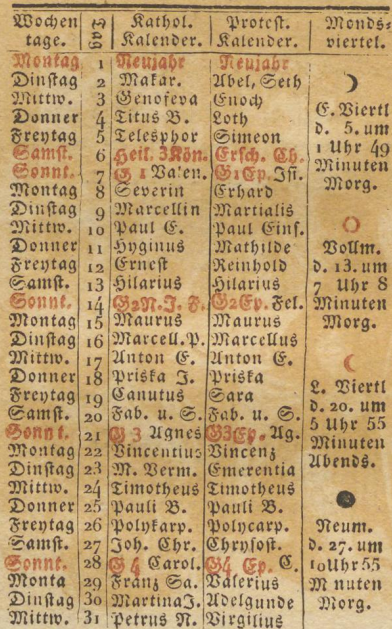 Wochen tage. Tag Kathol. Kalender. Protest. Kalender. Monds= viertel.
Montag 1 Neujahr Neujahr
Dinstag 2 Makar. Abel, Seth
Mittw. 3 Genofeva Enoch
Donner 4 Titus B. Loth E. Viertl
Freytag 5 Telesphor Simeon d. 5. um
Samst. 6 Heil. 3Kön. Ersch. Ch. 1 Uhr 49
Sonnt. 7 G 1 Valen. G1Ep. Isi. Minuten
Montag 8 Severin Erhard Morg.
Dinstag 9 Marcellin Martialis
Mittw. 10 Paul E. Paul Einf.
Donner 11 Hyginus Mathilde Vollm.
Freytag 12 Ernest Reinhold d. 13. um
Samst. 13 Hilarius Hilarius 7 Uhr 8
Sonnt. 14 G2N.J. F. G2Ep. Fel. Minuten
Montag 15 Maurus Maurus Morg.
Dinstag 16 Marcell.P. Marcellus
Mittw. 17 Anton E. Anton E.
Donner 18 Priska J. Priska L. Viertl
Freytag 19 Canutus Sara d. 20. um
Samst. 20 Fab. u. S. Fab. u. S. 5 Uhr 55
Sonnt. 21 G 3 Agnes G3Ep. Ag. Minuten
Montag 22 Vincentius Vincenz Abends.
Dinstag 23 M. Verm. Emerentia
Mittw. 24 Timotheus Timotheus
Donner 25 Pauli B. Pauli B.
Freytag 26 Polykarp. Polycarp. Neum.
Samst. 27 Joh. Chr. Chrysost. d. 27. um
Sonnt. 28 G4 Carol. G4 Ep. C. 10Uhr55
Monta 29 Franz Sa. Valerius M nuten
Dinstag 30 MartinaJ. Adelgunde Morg.
Mittw. 31 Petrus N. Virgilius